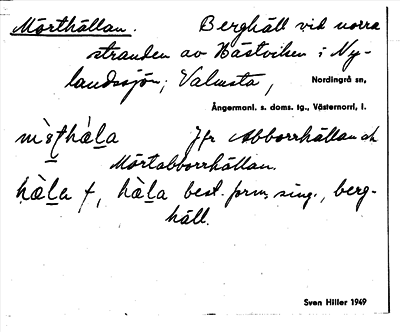 Mörthällan. Berghäll vid norra
stranden av Nästviken i Ny-
landssjön; Valmsta, Nordingrå sn,
Ångermanl. s. doms. tg., Västernorrl, l.
Jfr Abborrhällan och
Mörtabborrhällan.
hæ̀la f, hæ̀la best. form sing., berg-
häll.
Sven Hiller 1949